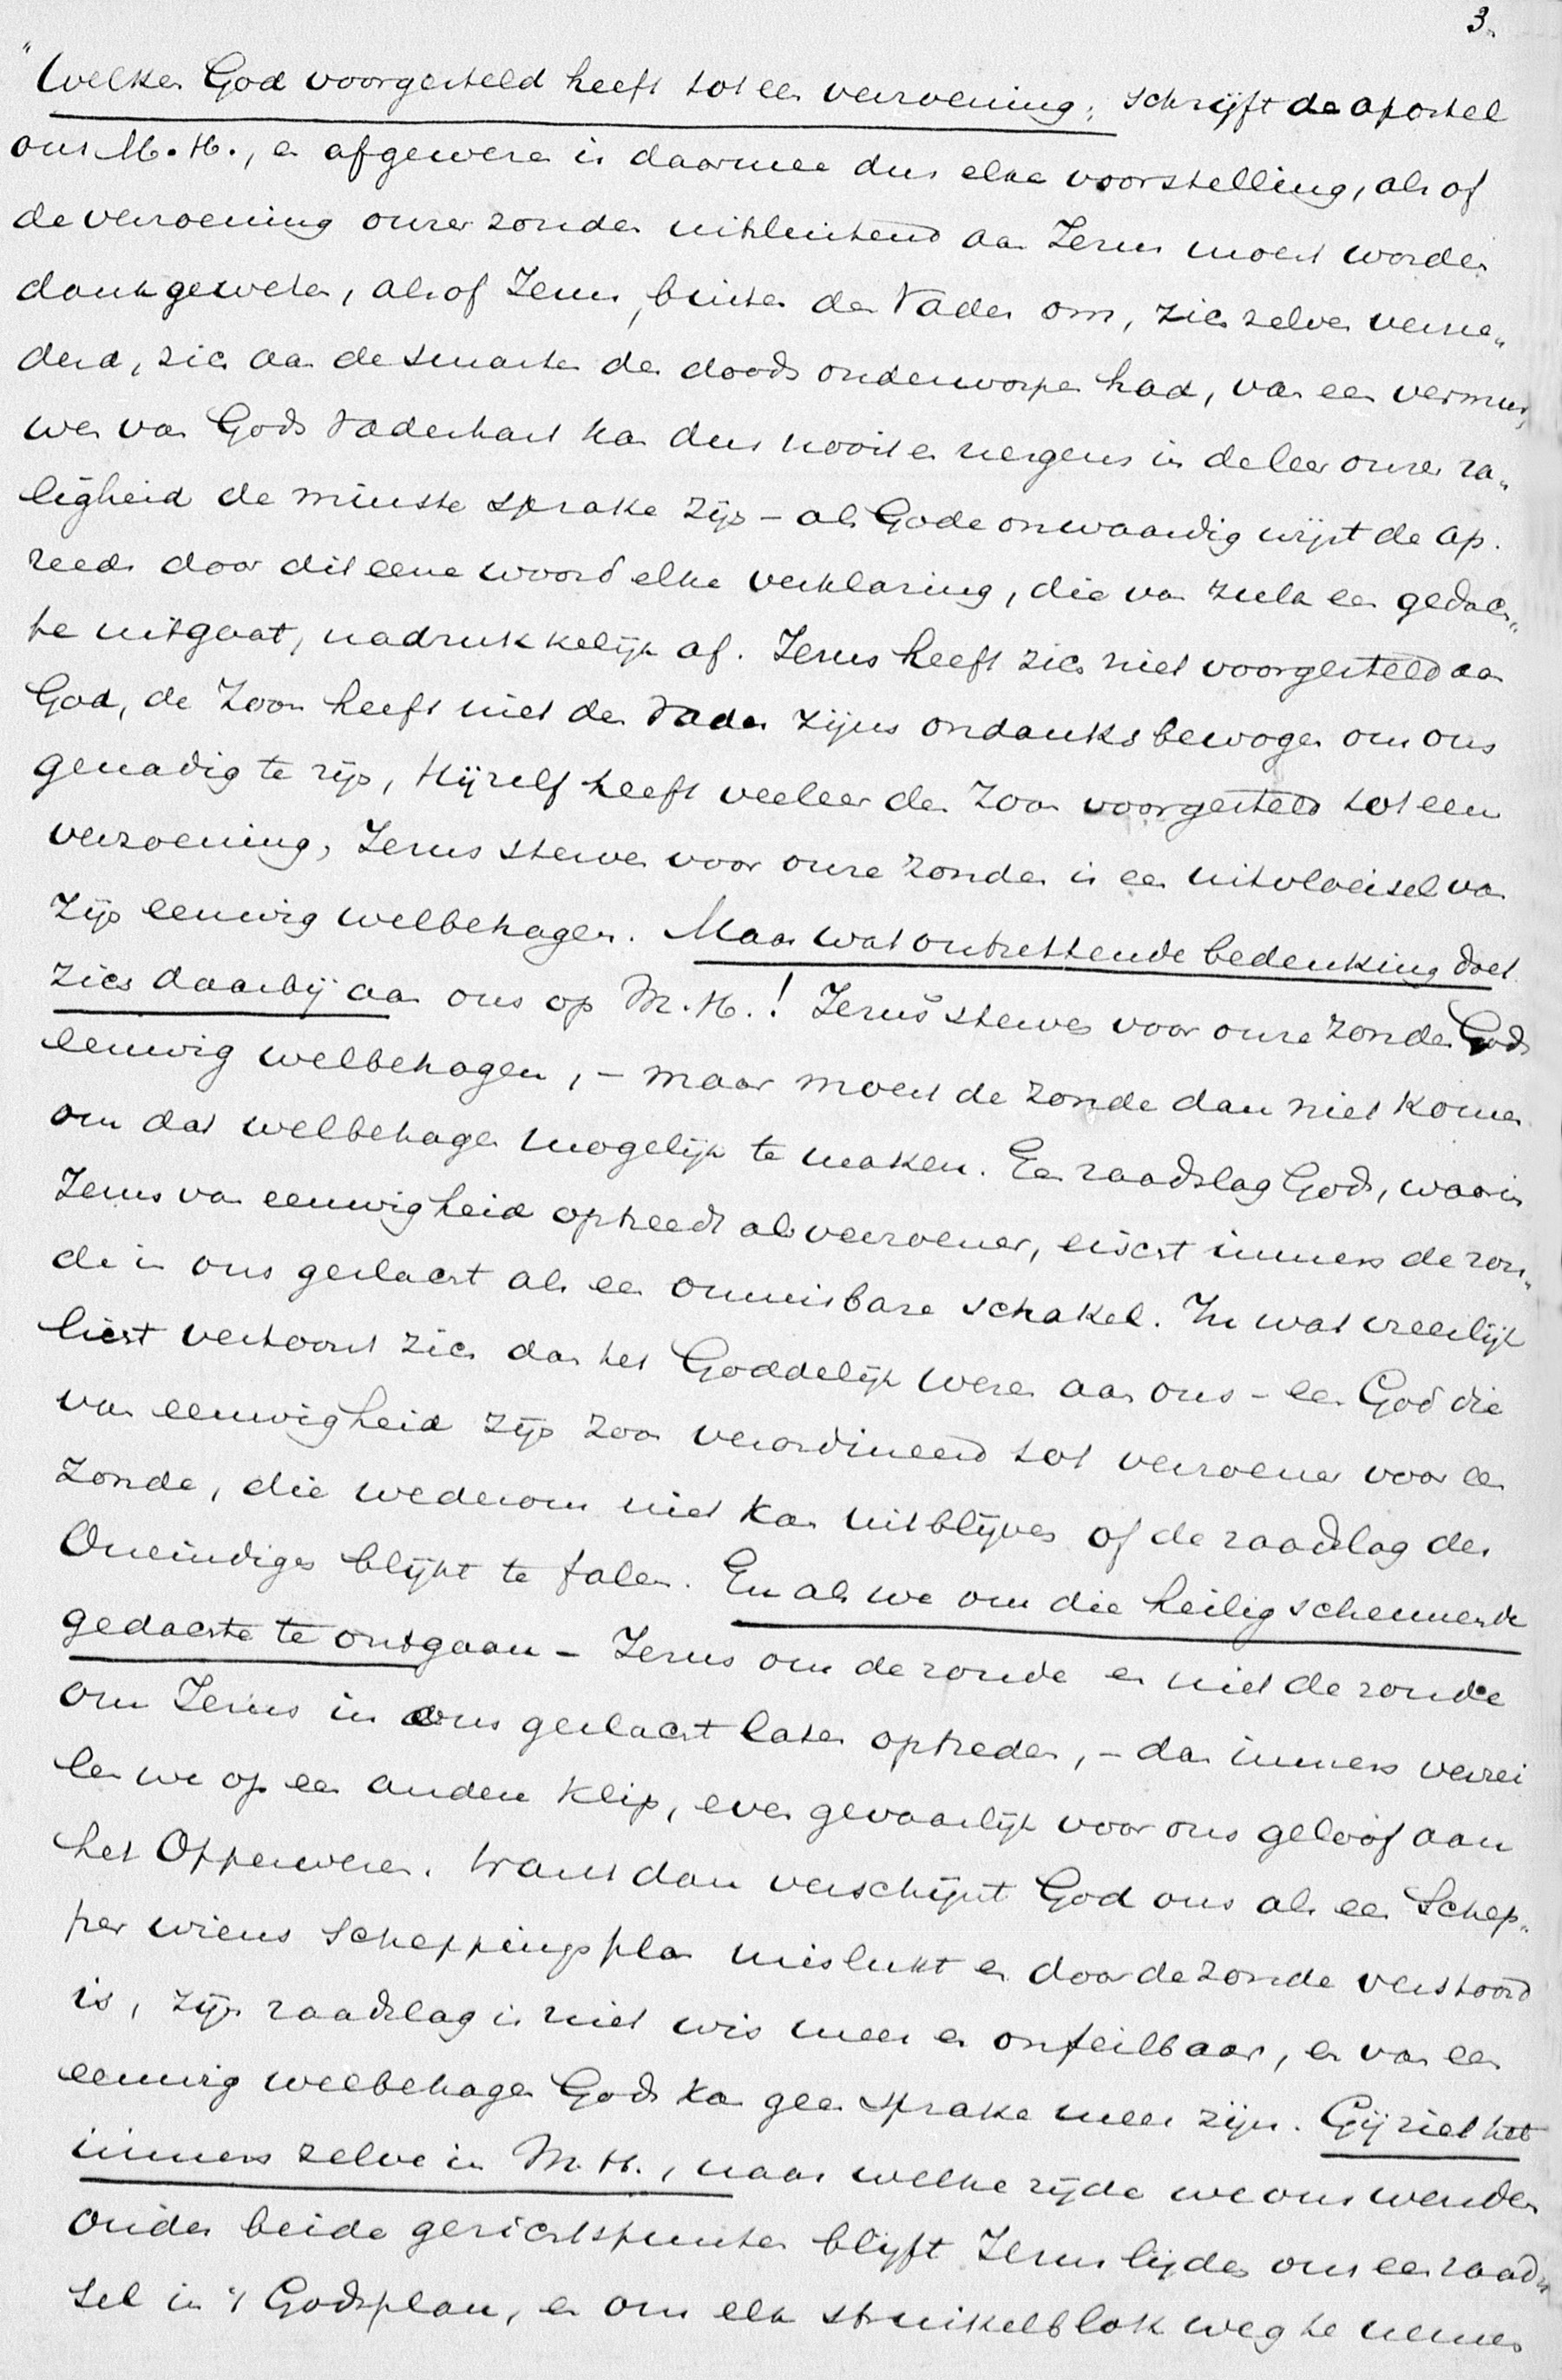 3.
"Welken God voorgesteld heeft tot een verzoening; schrijft de apostel
ons M.H., en afgewezen is daarmee dus elke voorstelling, als of
de verzoening onzer zonden uitsluitend aan Jezus moest worden
dankgeweten, alsof Jezus, buiten den Vader om, zich zelven verne„
derd, zich aan de smarten des doods onderworpen had, van een vermur„
wen van Gods Vaderhart kan dus nooit en nergens in de leer onzer za„
ligheid de minste sprake zijn – als Gode onwaardig wijst de Ap.
reeds door dit eene woord elke verklaring, die van zulk een gedach„
te uitgaat, nadrukkelijk af. Jezus heeft zich niet voorgesteld aan
God, de Zoon heeft niet den Vader zijns ondanks bewogen om ons
genadig te zijn, Hijzelf heeft veeleer den Zoon voorgesteld tot een
verzoening, Jezus sterven voor onze zonden is een uitvloeisel van
Zijn eeuwig welbehagen. Maar wat ontzettende bedenking doet
zich daarbij aan ons op M.H.! Jezus sterven voor onze zonden Gods
eeuwig welbehagen, – maar moest de zonde dan niet komen
om dat welbehagen mogelijk te maken. Een raadslag Gods, waarin
Jezus van eeuwigheid optreedt als verzoener, eischt immers de zon„
de in ons geslacht als een onmisbare schakel. In wat vreeslijk
licht vertoont zich dan het Goddelijk wezen aan ons – een God die
van eeuwigheid zijn Zoon verordineerd tot verzoener voor een
zonde, die wederom niet kan uitblijven of de raadslag des
Oneindigen blijkt te falen. En als we om die heiligschennende
gedachte te ontgaan – Jezus om de zonde en niet de zonde
om Jezus in ons geslacht laten optreden, – dan immers verzei
len we op een andere klip, even gevaarlijk voor ons geloof aan
het Opperwezen. Want dan verschijnt God ons als een Schep„
per wiens scheppingsplan mislukt en door de zonde verstoord
is, zijn raadslag is niet wis meer en onfeilbaar, en van een
eeuwig welbehagen Gods kan geen sprake meer zijn. Gij ziet het
immers zelve in M.H., naar welke zijde we ons wenden
onder beide gezichtspunten blijft Jezus lijden ons een raad„
sel in 't Godsplan, en om elk struikelblok weg te nemen